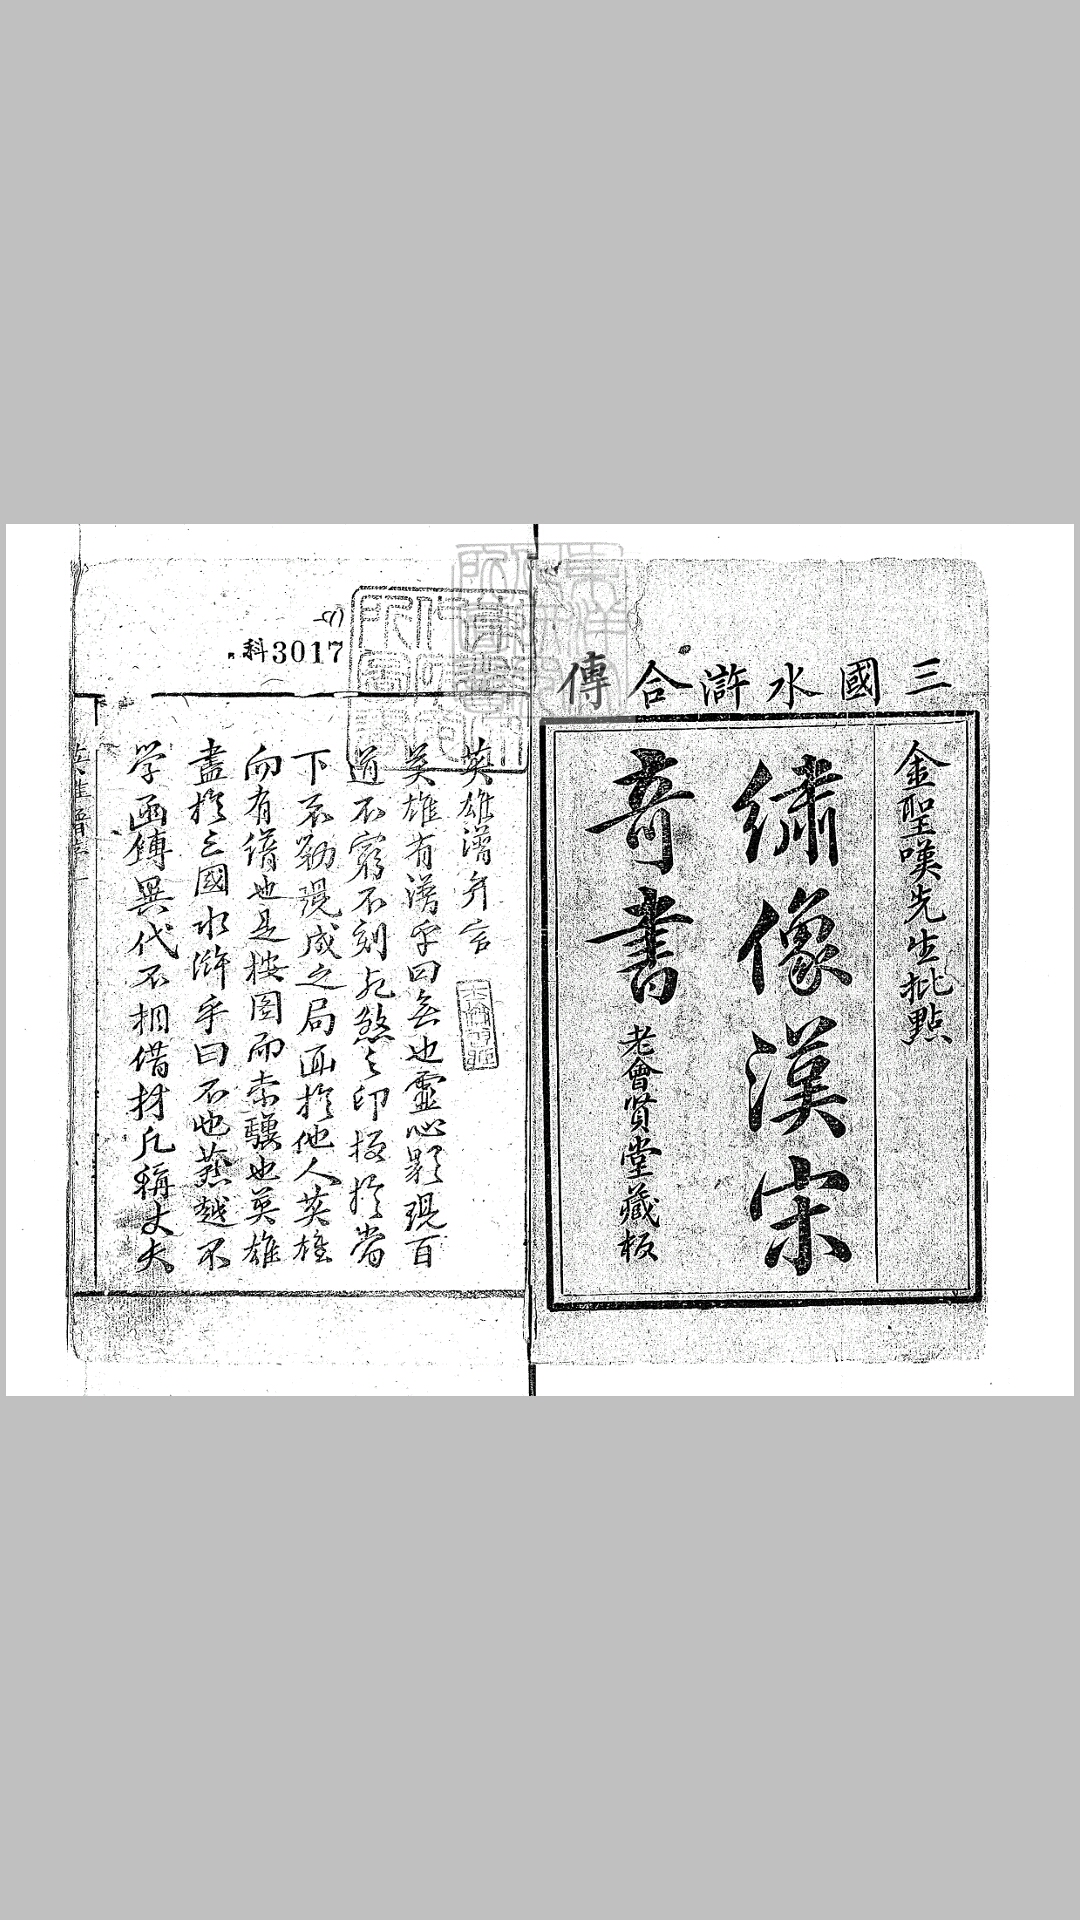 三國水滸合傳
金聖嘆先生批點
繡像漢宋
奇書
老會賢堂藏板
科3017
英雄譜弁言
英雄有譜乎曰無也靈心影現百
道不窮不刻死煞之印板於當
下不勒現成之局面於他人英雄
而有譜也是按圖而索驥也英雄
盡於三國水滸乎曰不也燕越不
學函鏄異代不相借材凡稱丈夫